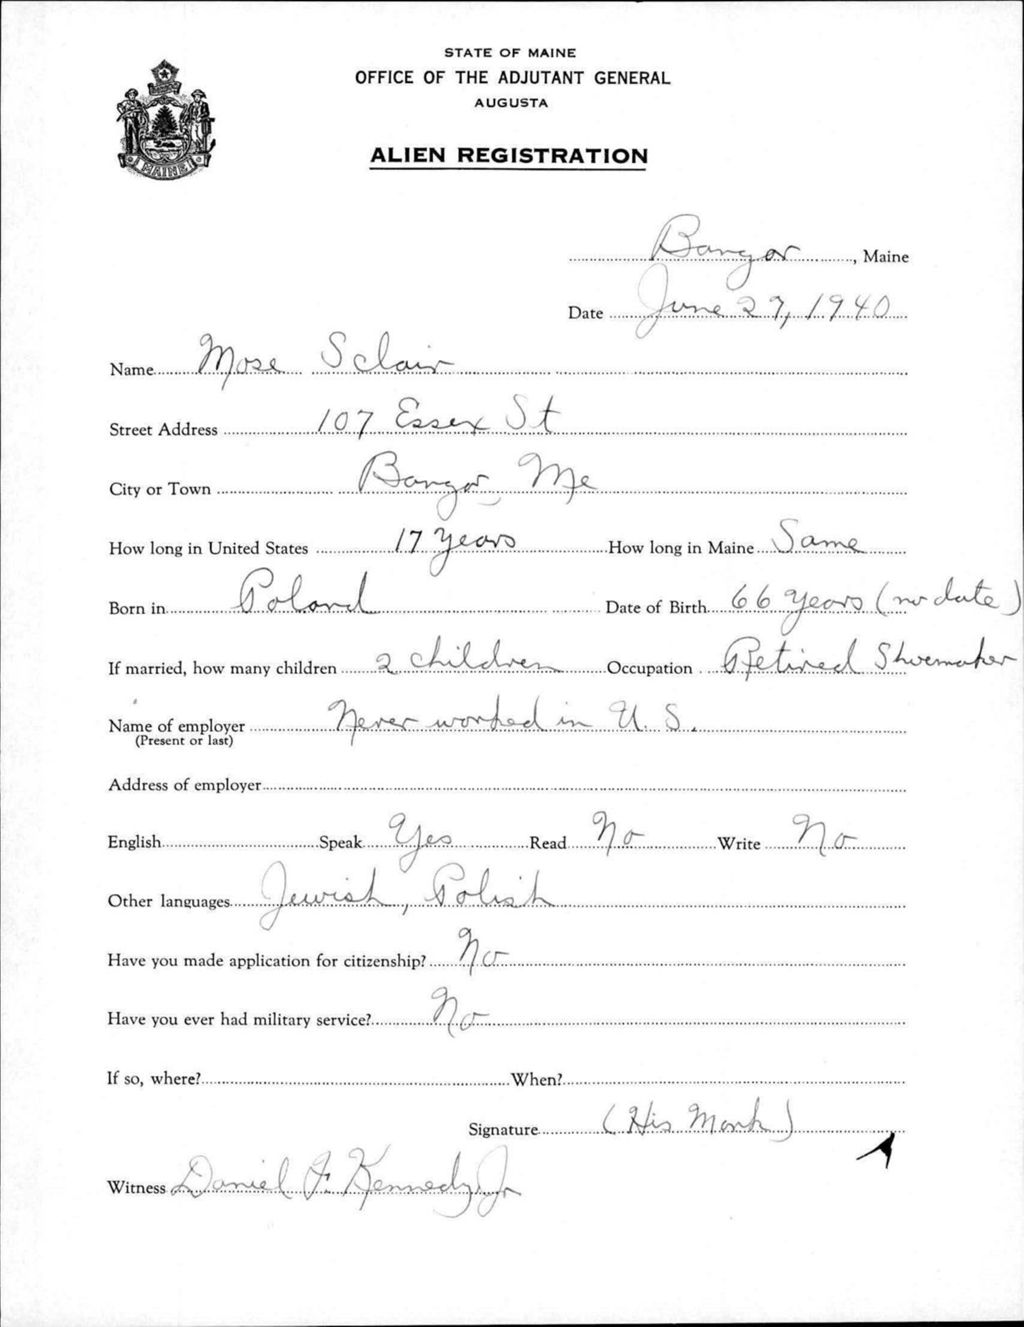 STATE OF MAINE
OFFICE OF THE ADJUTANT GENERAL
AUGUSTA
ALIEN REGISTRATION
MAINE
Bangor, Maine
Date June 27, 1940
Name Mose Sclair
Street Address 107 Essex St
City or Town Bangor Me
How long in United States 17 years How long in Maine Same
Born in Poland Date of Birth 66 years (no date)
If married, how many children 2 children Occupation Retired Shoemaker
Name of employer Never worked in U.S.
(Present or last)
Address of employer
English Speak Yes Read No Write No
Other languages Jewish, Polish
Have you made application for citizenship? No
Have you ever had military service? No
If so, where? When?
Signature (His Mark)
Witness Daniel F. Kennedy Jr